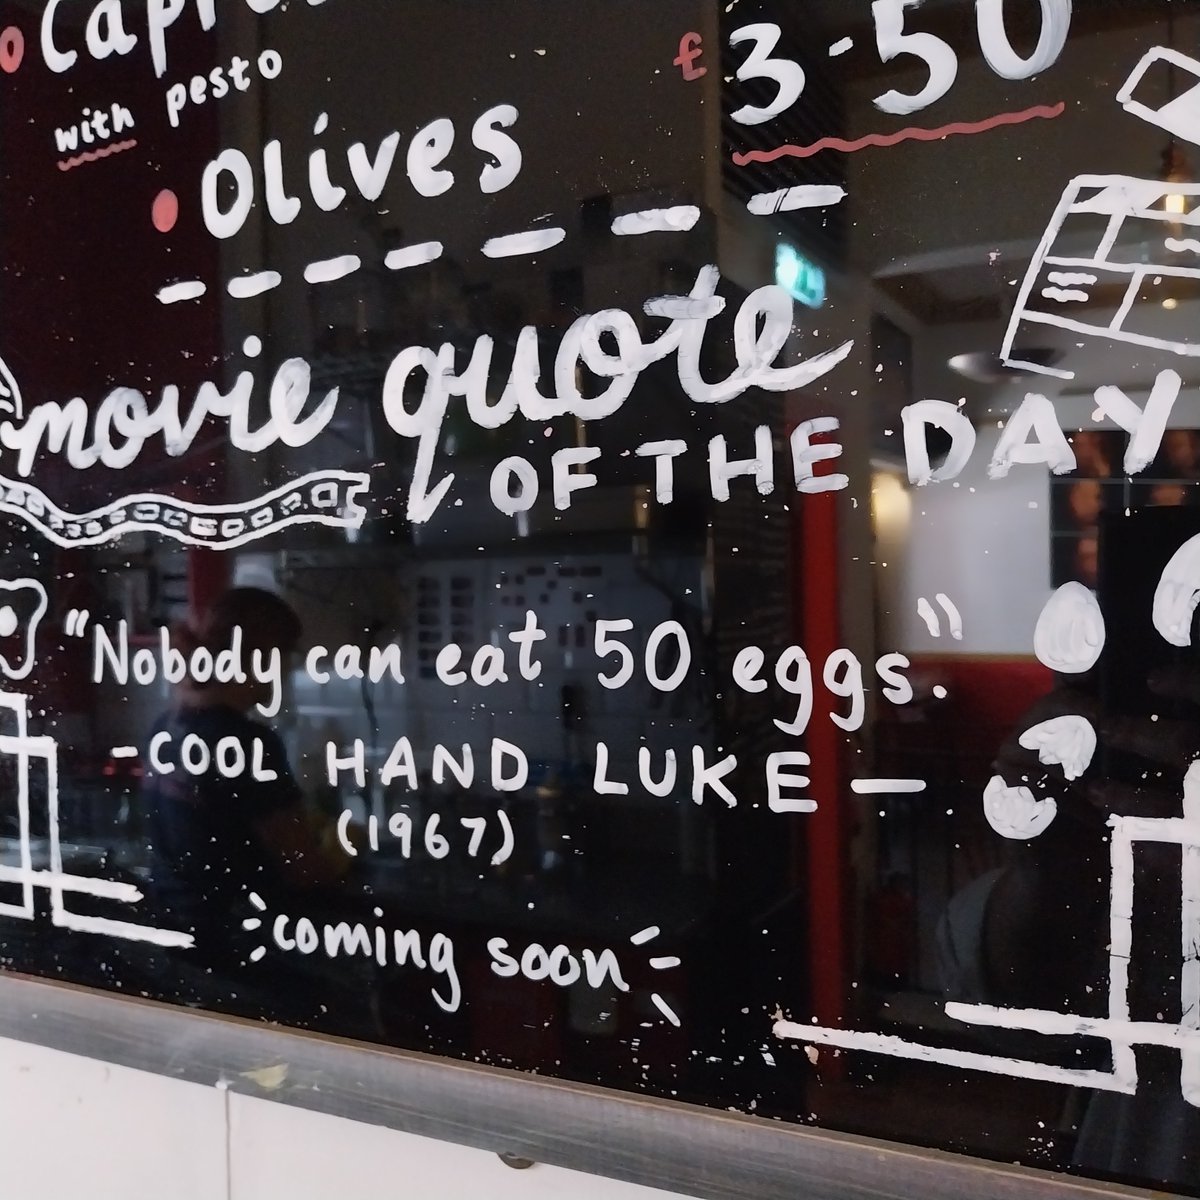 with pesto
£3.50
Olives
movie quote
OF THE DAY
"Nobody can eat 50 eggs."
-COOL HAND LUKE—
(1967)
coming soon